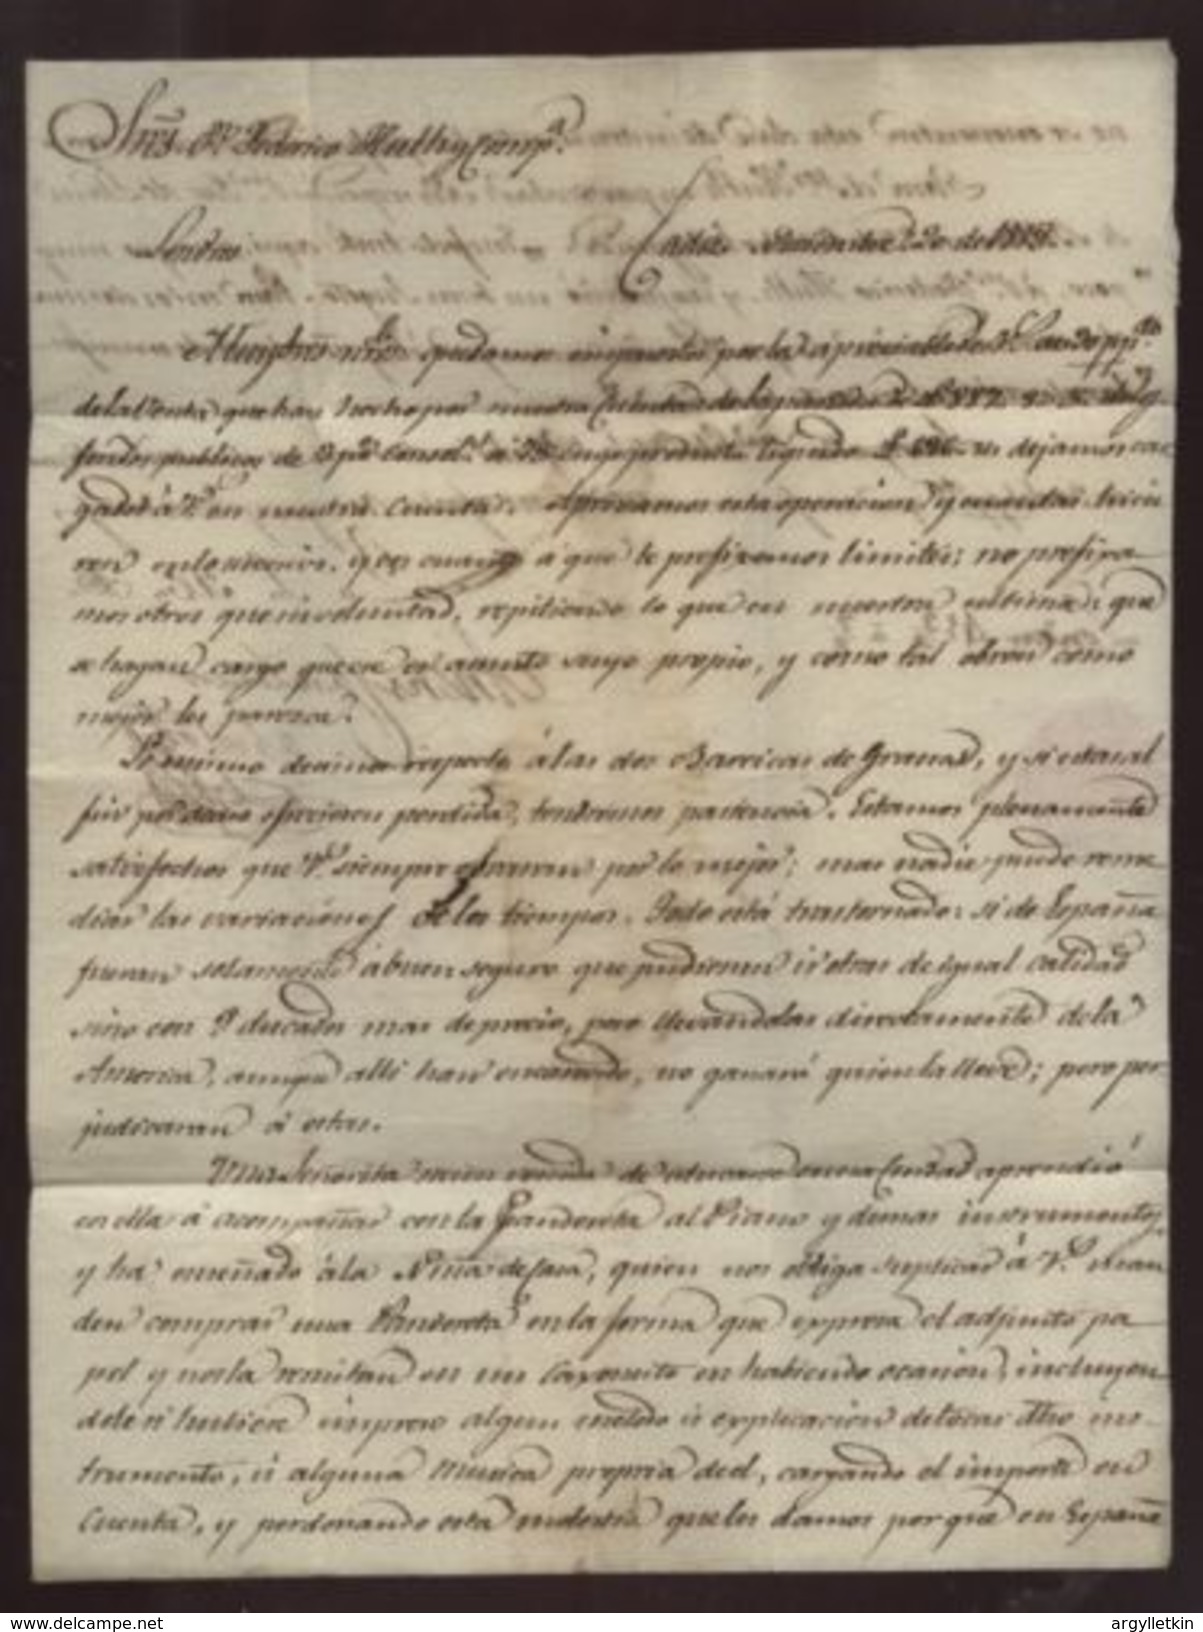 Sres. Dn. Federico Huth y Compa.
Londres Cadiz 20 de 1819.
Muy Sres. nrs. quedamos impuestos por la apreciable de V. 
de la Venta que han hecho por nuestra Cuenta de la
fondos publicos de 3 p% Consol. cuyo producto liquido £ dejamos car
gados á Vs. en nuestra Cuenta. Aprovamos esta operacion y quantas hicie
ren en lo sucesivo, y en quanto á que le prefixemos limites; no prefixa
mos otros que su voluntad, repitiendo lo que en nuestra ultima; que
se hagan cargo que es en asunto suyo propio, y como tal obren como
mejor les paresca.
Lo mismo decimos respecto á las dos Barricas de Grana, y si estas al
fin por darse ofrecieren perdida, tendremos paciencia. Estamos plenamente
satisfechos que Vs. siempre obraran por lo mejor; mas nadie puede reme
diar las variaciones de los tiempos. Todo está trastornado: si de España
fueran solamente á buen seguro que pudieran ir otras de igual calidad
sino con 9 ducados mas de precio, pero llevandolas directamente de la
America, aunque alli han encarecido, no ganará quien la lleve; pero per
judicaran á estas.
Una Señorita recien venida de educarse en esa Ciudad aprendió
en ella á acompañar con la Pandereta al Piano y demas instrumentos,
y ha enseñado á la Niña de Casa, quien nos obliga suplicar á Vs. man
den comprar una Pandereta en la forma que expresa el adjunto pa
pel y nos la remitan en un Caxoncito en habiendo ocasion, incluyen
dole si hubiere impreso algun metodo ó explicacion de tocar dho ins
trumento, ú alguna Musica propia de el, cargando el importe en
Cuenta, y perdonando esta molestia que les damos por que en España
argylletkin
www.delcampe.net